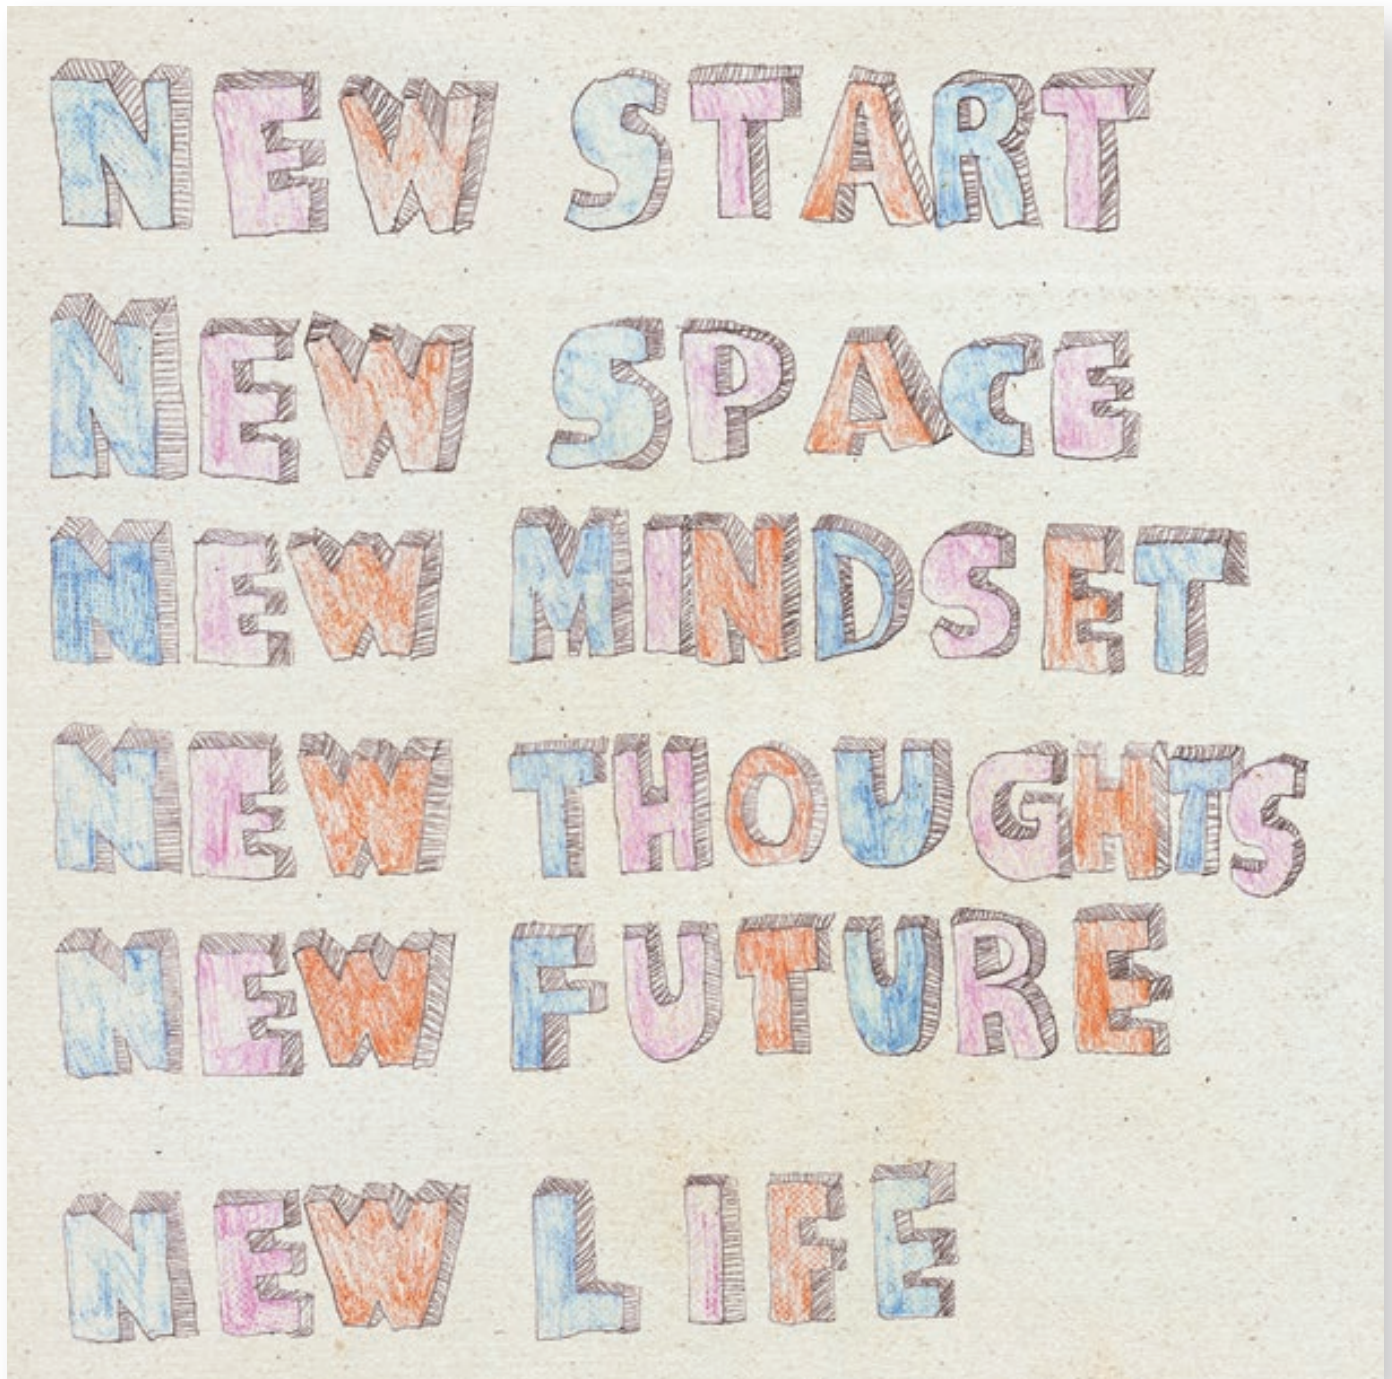 NEW START
NEW SPACE
NEW MINDSET
NEW THOUGHTS
NEW FUTURE
NEW LIFE